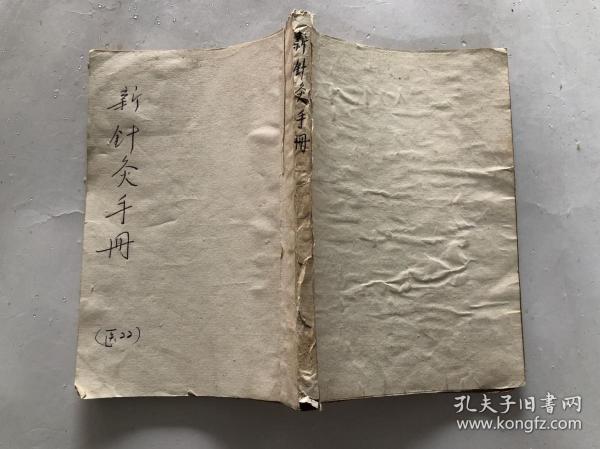 新针灸手册
(医22)
新针灸手册
孔夫子旧书网
www.kongfz.com